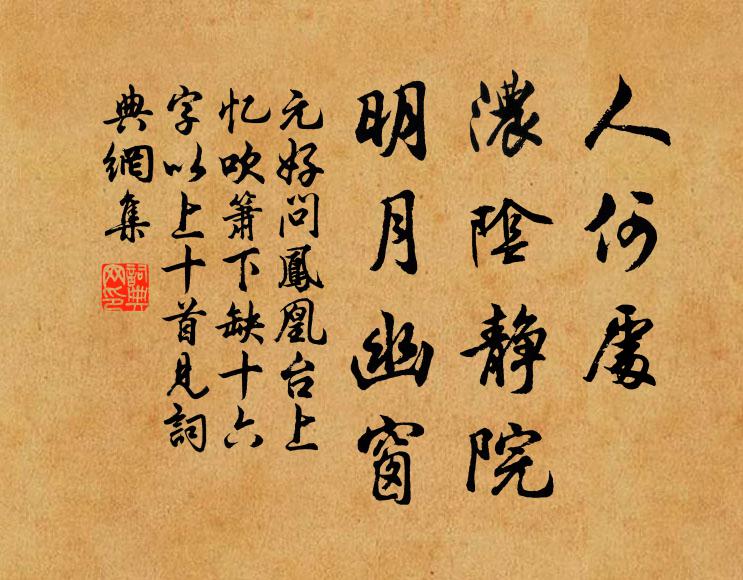 人何處
濃陰靜院
明月幽窗
元好问鳳凰台上
忆吹簫下缺十六
字以上十首見詞
典網集
詞典
网印